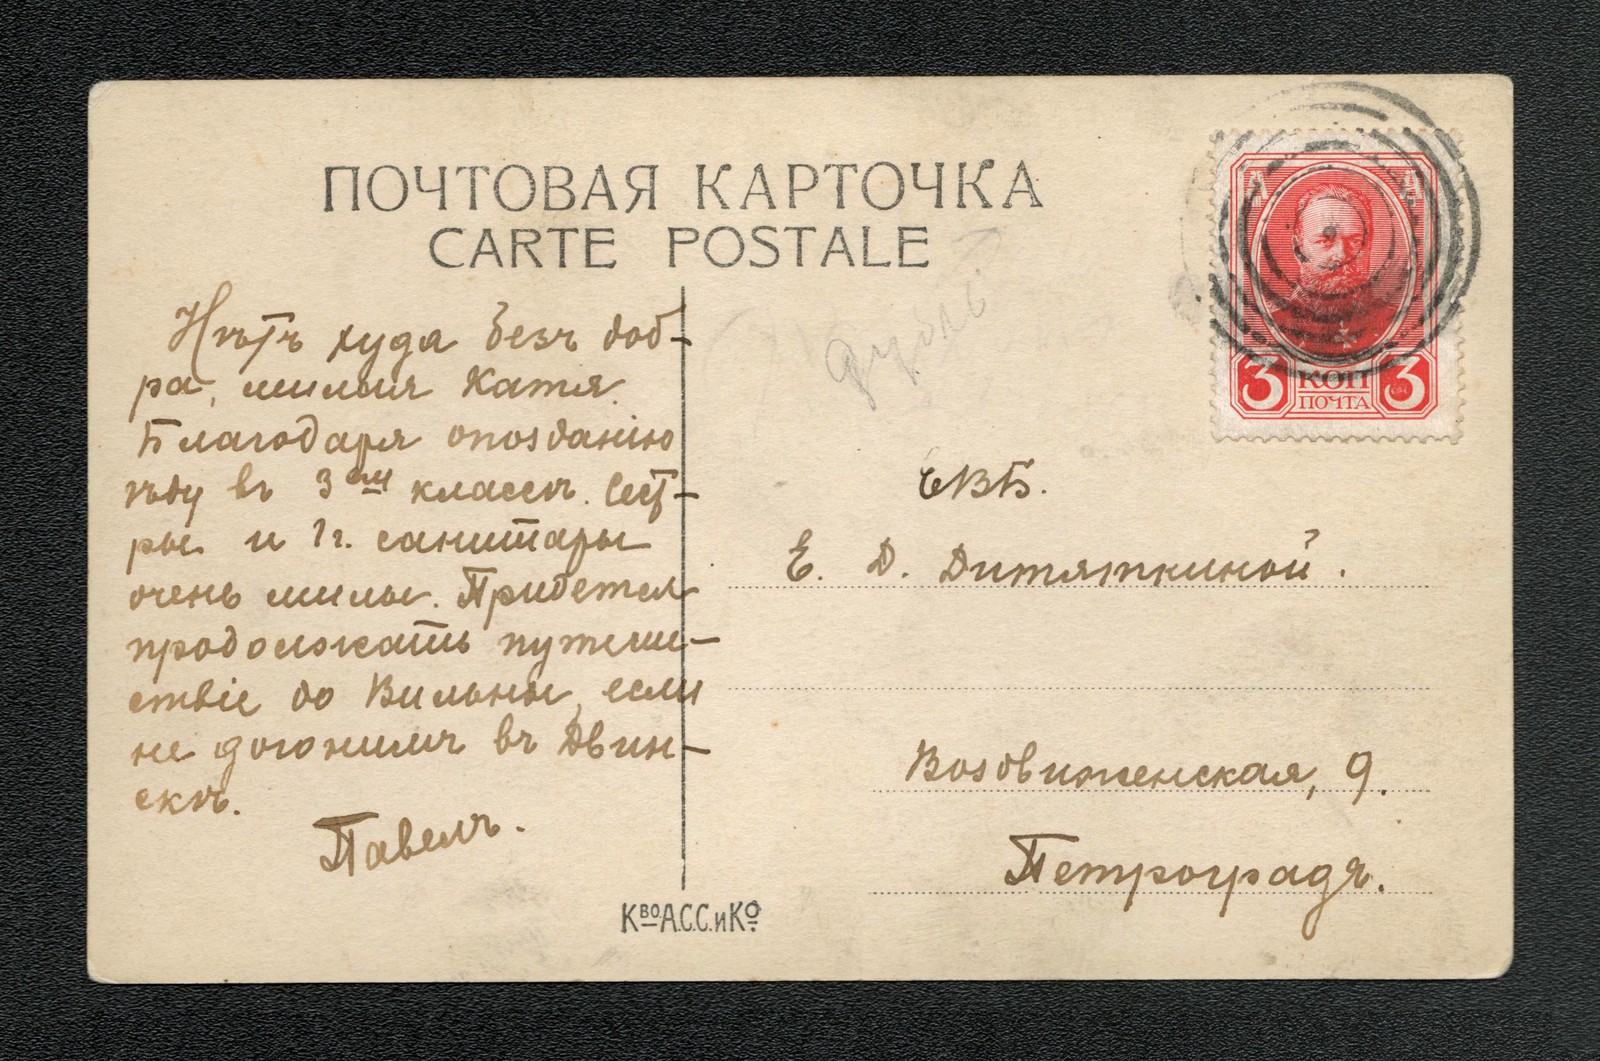 ПОЧТОВАЯ КАРТОЧКА
CARTE POSTALE
Нѣтъ худа безъ доб-
ра, милая Катя.
Благодаря опозданію
ѣду въ 3ем классѣ. Сест-
ры и 1г. санитары
очень милы. Придется
продолжать путеше-
ствіе до Вильны, если
не догонимъ въ Двин-
скѣ.
Павелъ.
дубль
3 КОП 3
ПОЧТА
ЕВБ.
Е. Д. Дитяткиной.
Воздвиженская, 9.
Петроградъ.
КВО А.С.С. и КО